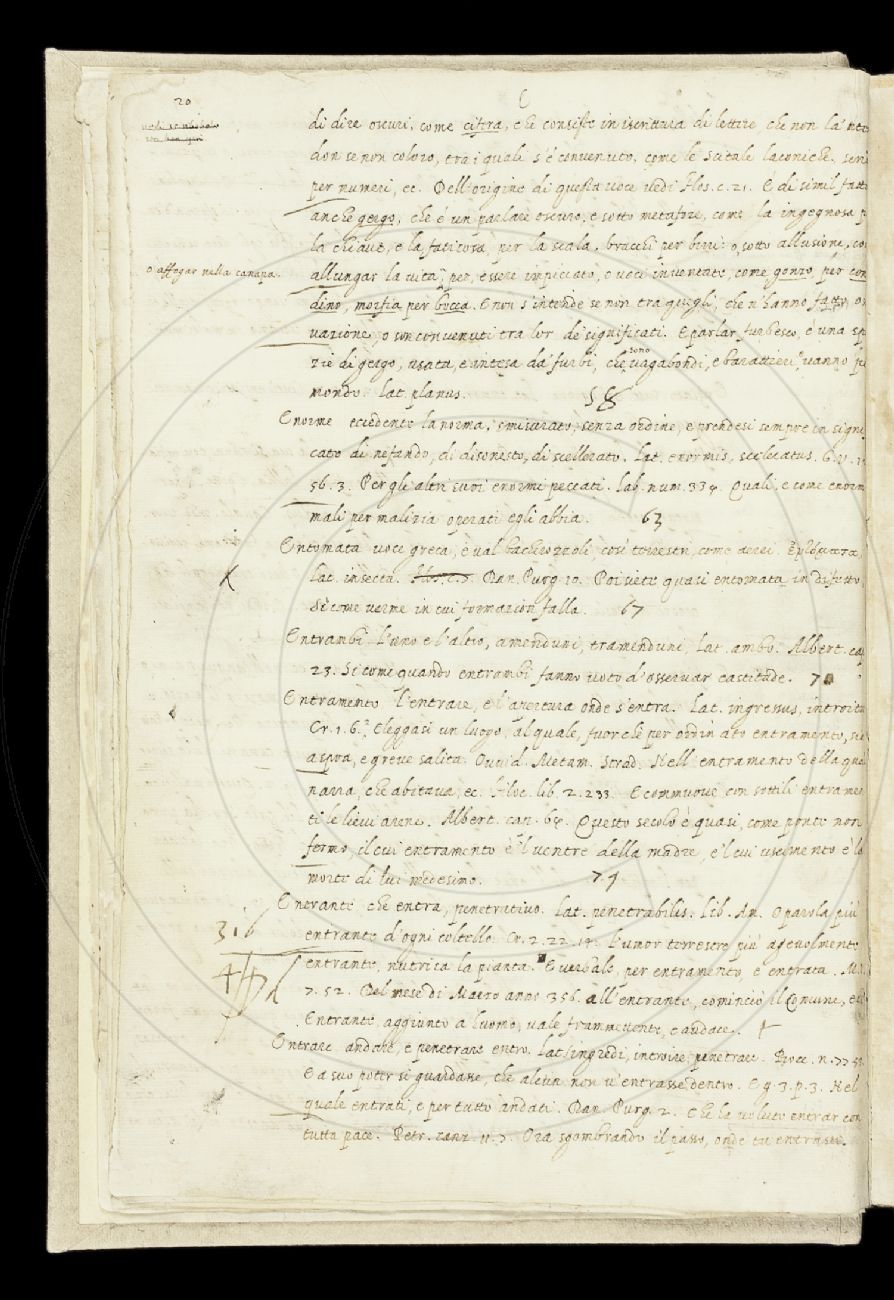 20
di dire oscuri, come cifra, che consiste in iscrittura di lettere che non la
don se non coloro, tra i quali s'è convenuto, come le Scitale laconiche.
per numeri, ec. Dell'origine di questa voce vedi Flos. c. 21. E di simil fatta
anche gergo, che è un parlare oscuro, e sotto metafore, come la ingegnosa p
la chiave, e la faticosa per la scala, bracchi per birri: o sotto allusione, co
o affogar nella canapa.
allungar la vita, per, essere impiccato, e voci inventate, come gonzo, per con
dino, morfia per bocca. E non s'intende se non tra quegli, che n'hanno fatto
vazione, o son convenuti tra lor de significati. E parlar furbesco, è una sp
zie di gergo, usata, e intesa da furbi, che sono vagabondi, e barattieri, vanno pe
mondo. Lat. planus. 58
Enorme eccedente la norma, smisurato, senza ordine, e prendesi sempre in signi
cato di nefando, di disonesto, di scellerato. Lat. enormis, sceleratus. G. V.
56. 3. Per gli altri suoi enormi peccati. Lab. num. 334. Quali, e come enorm
mali per malizia operati egli abbia. 63
Entomata voce greca, e val bacherozzoli, così terrestri, come aerei.
X
Lat. insecta. Flos. c. 5. Dan. Purg. 10. Poi siete quasi entomata in difetto
Sì come verme in cui formazion falla. 67
Entrambi. L'uno e l'altro, amenduni, tramenduni, Lat. ambo. Albert. cap
23. Sì come quando entrambi fanno voto d'osservar castitade. 70
Entramento l'entrare, e l'apertura onde s'entra. Lat. ingressus, introitu
Cr. 1. 6. 2. Eleggasi un luogo, al quale, fuor che per ordinato entramento, sia
aspra, e greve salita. Ovvid. Metam. Strad. Nell entramento della qua
naria, che abitava, ec. Filoc. lib. 2. 233. E commuove con sottili entramen
ti le lievi arene. Albert. cap. 64. Questo secolo è quasi, come ponte non
fermo, il cui entramento è 'l ventre della madre, e 'l cui uscimento è la
morte di lui medesimo. 74
Entrante che entra, penetrativo. Lat. penetrabilis. Lib. Am. O parola più
316
entrante d'ogni coltello. Cr. 2. 22. 14. L'umor terrestre più agevolmente
entrante, nutrica la pianta. E verbale, per entramento, e entrata. M.
7. 52. Del mese di Marzo anno 356. all'entrante, cominciò il Comune,
Entrante aggiunto a luomo, vale frammettente, e audace.
Entrare andare, e penetrare entro. Lat. ingredi, introire, penetrare. Bocc. n.
E a suo poter si guardasse, che alcun non v'entrasse dentro. E g. 3. p. 3. Nel
quale entrati, e per tutto andati. Dan. Purg. 2. Che ha voluto entrar con
tutta pace. Petr. canz. Ora sgombrando il passo, onde tu entrasti.